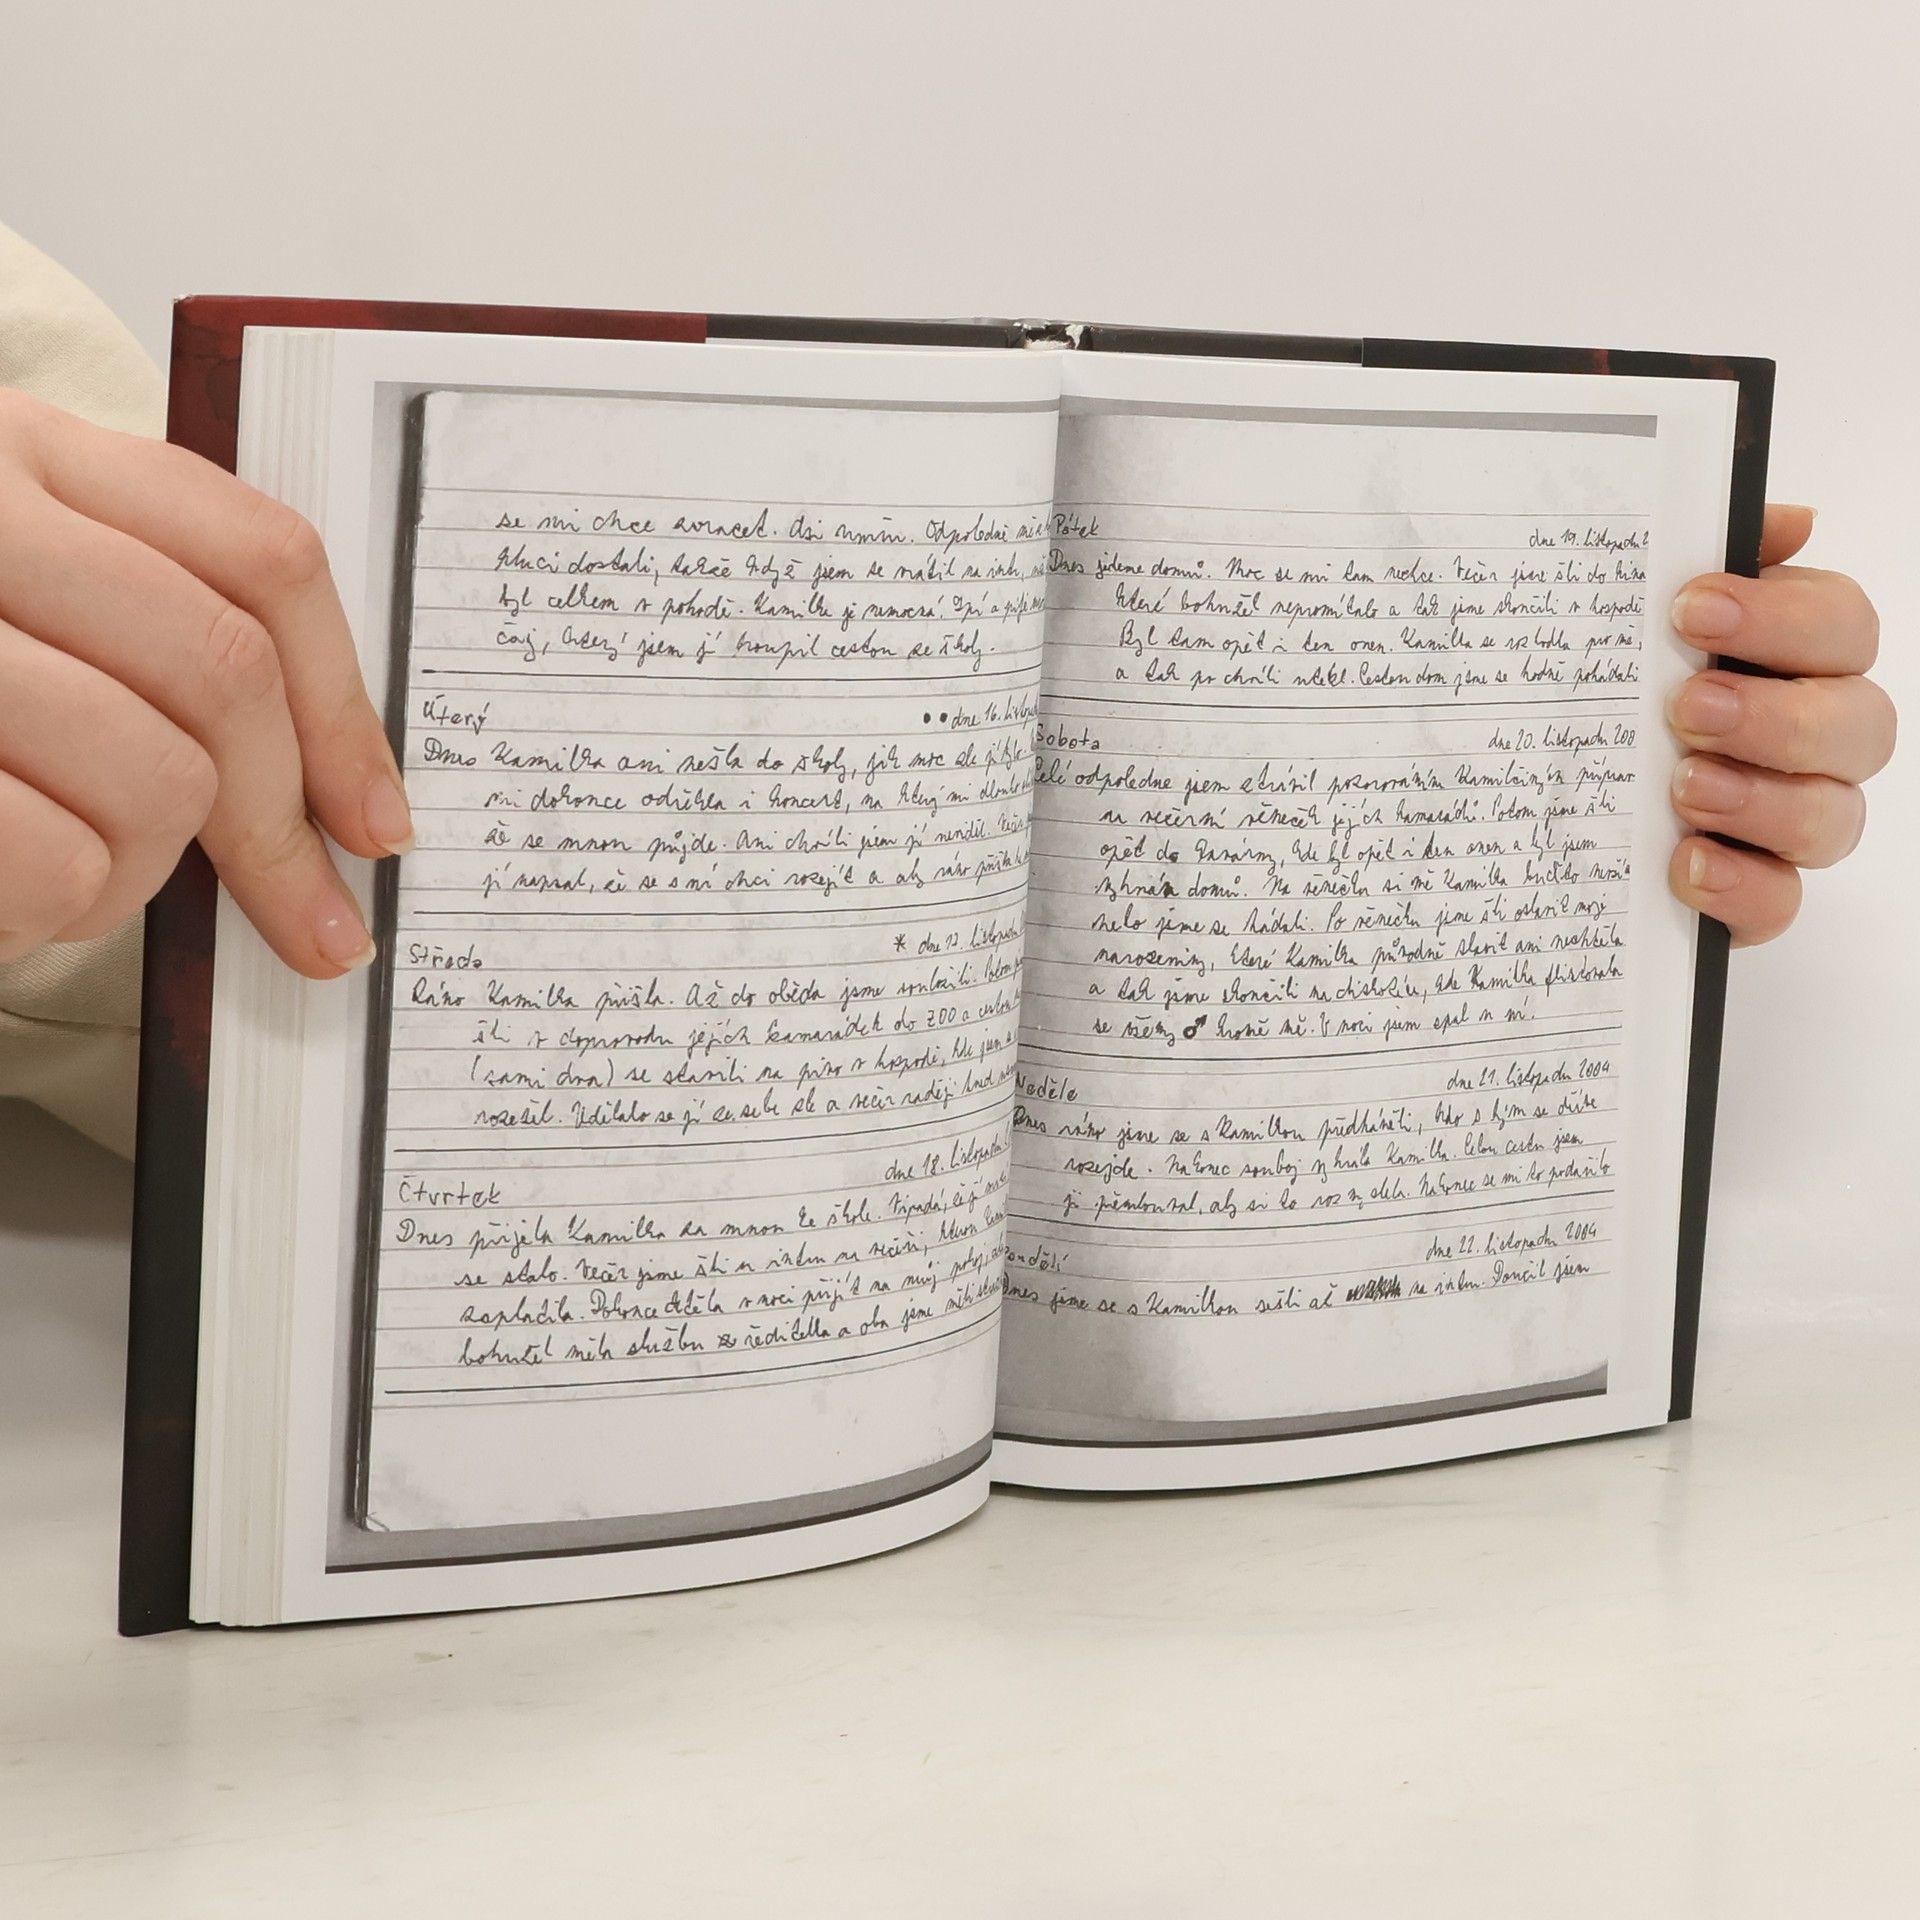 se mi chce zvracet. Asi umřu. Odpoledne mě
kluci dostali, takže když jsem se vrátil na intr,
byl celkem v pohodě. Kamilka je nemocná. Spí a pije
čaj, který jsem jí koupil cestou ze školy.
Úterý
•• dne 16. listopadu
Dnes Kamilka ani nešla do školy, jak moc zle jí bylo.
mi dokonce odřekla i koncert, na který mi dlouho
že se mnou půjde. Ani chvíli jsem jí neviděl. Večer
jí napsal, že se s ní chci rozejít a aby ráno přišla
Středa
* dne 17. listopadu
Ráno Kamilka přišla. Až do oběda jsme souložili. Potom
šli v doprovodu jejích kamarádek do ZOO a cestou
(sami dva) se stavili na pivo v hospodě, kde jsem
rozešel. Udělalo se jí ze sebe zle a večer raději hned
Čtvrtek
dne 18. listopadu
Dnes přijela Kamilka za mnou ke škole. Vypadá, že jí
se stalo. Večer jsme šli z intru na večeři, kterou
zaplatila. Dokonce chtěla v noci přijít na můj pokoj, ale
bohužel měla službu ředitelka a oba jsme měli
Pátek
dne 19. listopadu 2
Dnes jedeme domů. Moc se mi tam nechce. Večer jsme šli do kina
které bohužel nepromítalo a tak jsme skončili v hospodě
Byl tam opět i ten onen. Kamilka se rozhodla pro mě,
a tak po chvíli utekl. Cestou dom jsme se hodně pohádali
Sobota
dne 20. listopadu 200
Celé odpoledne jsem strávil pozorováním Kamilčiných příprav
na večerní věneček jejích kamarádů. Potom jsme šli
opět do kavárny, kde byl opět i ten onen a byl jsem
vyhnán domů. Na věnečku si mě Kamilka buďto
nebo jsme se hádali. Po věnečku jsme šli oslavit moje
narozeniny, které Kamilka původně slavit ani nechtěla
a tak jsme skončili na diskotéce, kde Kamilka flirtovala
se všemy ♂ kromě mě. V noci jsem spal u ní.
Neděle
dne 21. listopadu 2004
Dnes ráno jsme se s Kamilkou předháněli, kdo s kým se dříve
rozejde. Nakonec souboj vyhrála Kamilka. Celou cestu jsem
ji přemlouval, aby si to rozmyslela. Nakonec se mi to podařilo
Pondělí
dne 22. listopadu 2004
Dnes jsme se s Kamilkou sešli až na intru. Poučil jsem